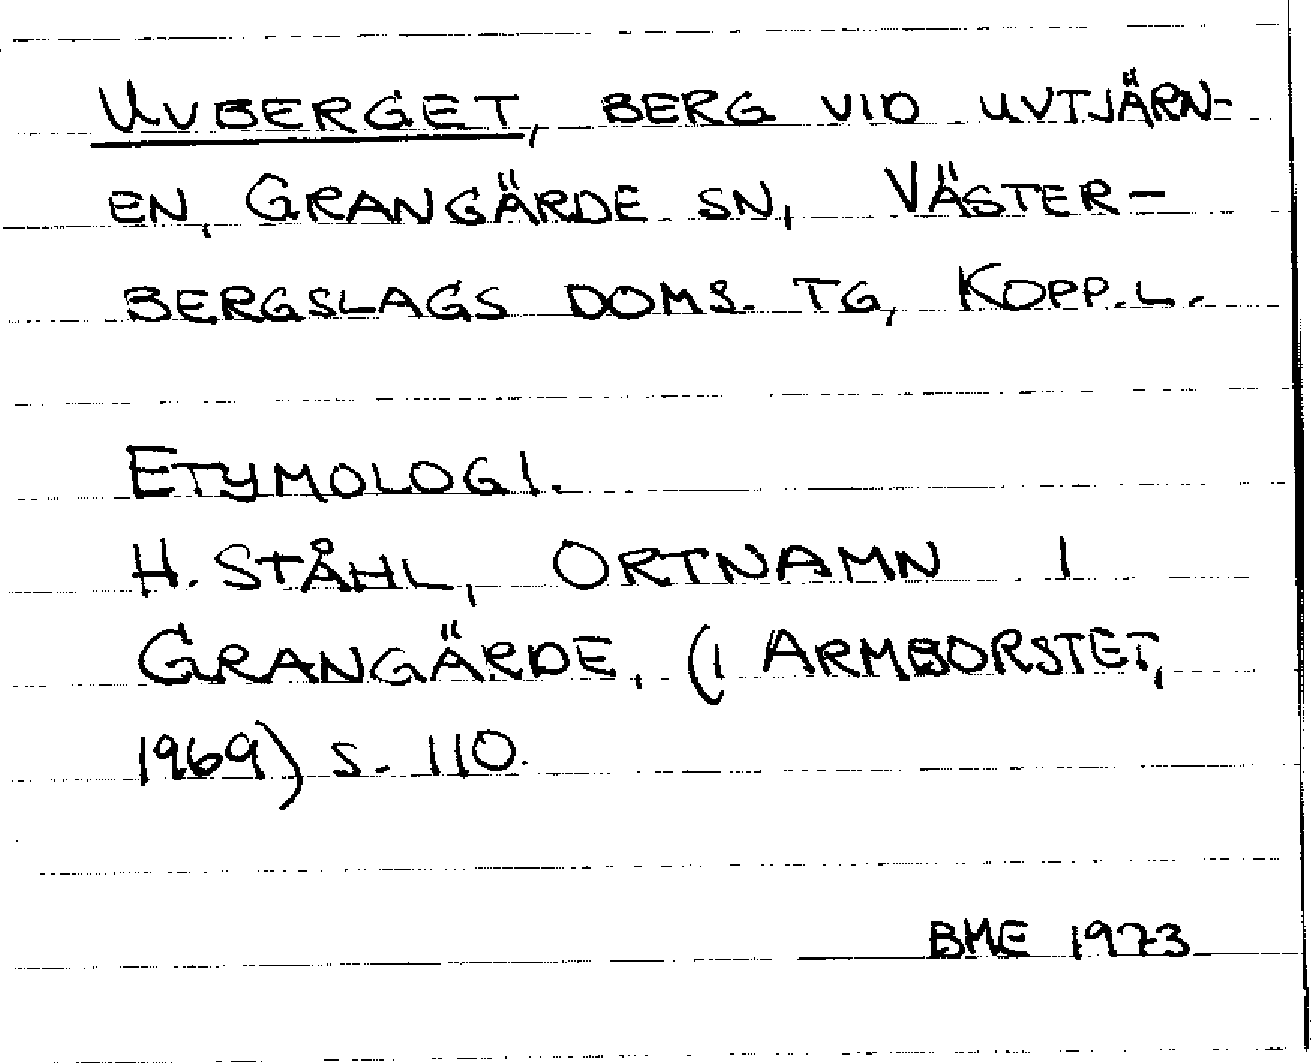 UVBERGET, BERG VID UVTJÄRN-
EN, GRANGÄRDE SN, VÄSTER-
BERGSLAGS DOMS. TG, KOPP.L.
ETYMOLOGI.
H. STÅHL, ORTNAMN I
GRANGÄRDE, (I ARMBORSTET,
1969) S. 110.
BME 1973